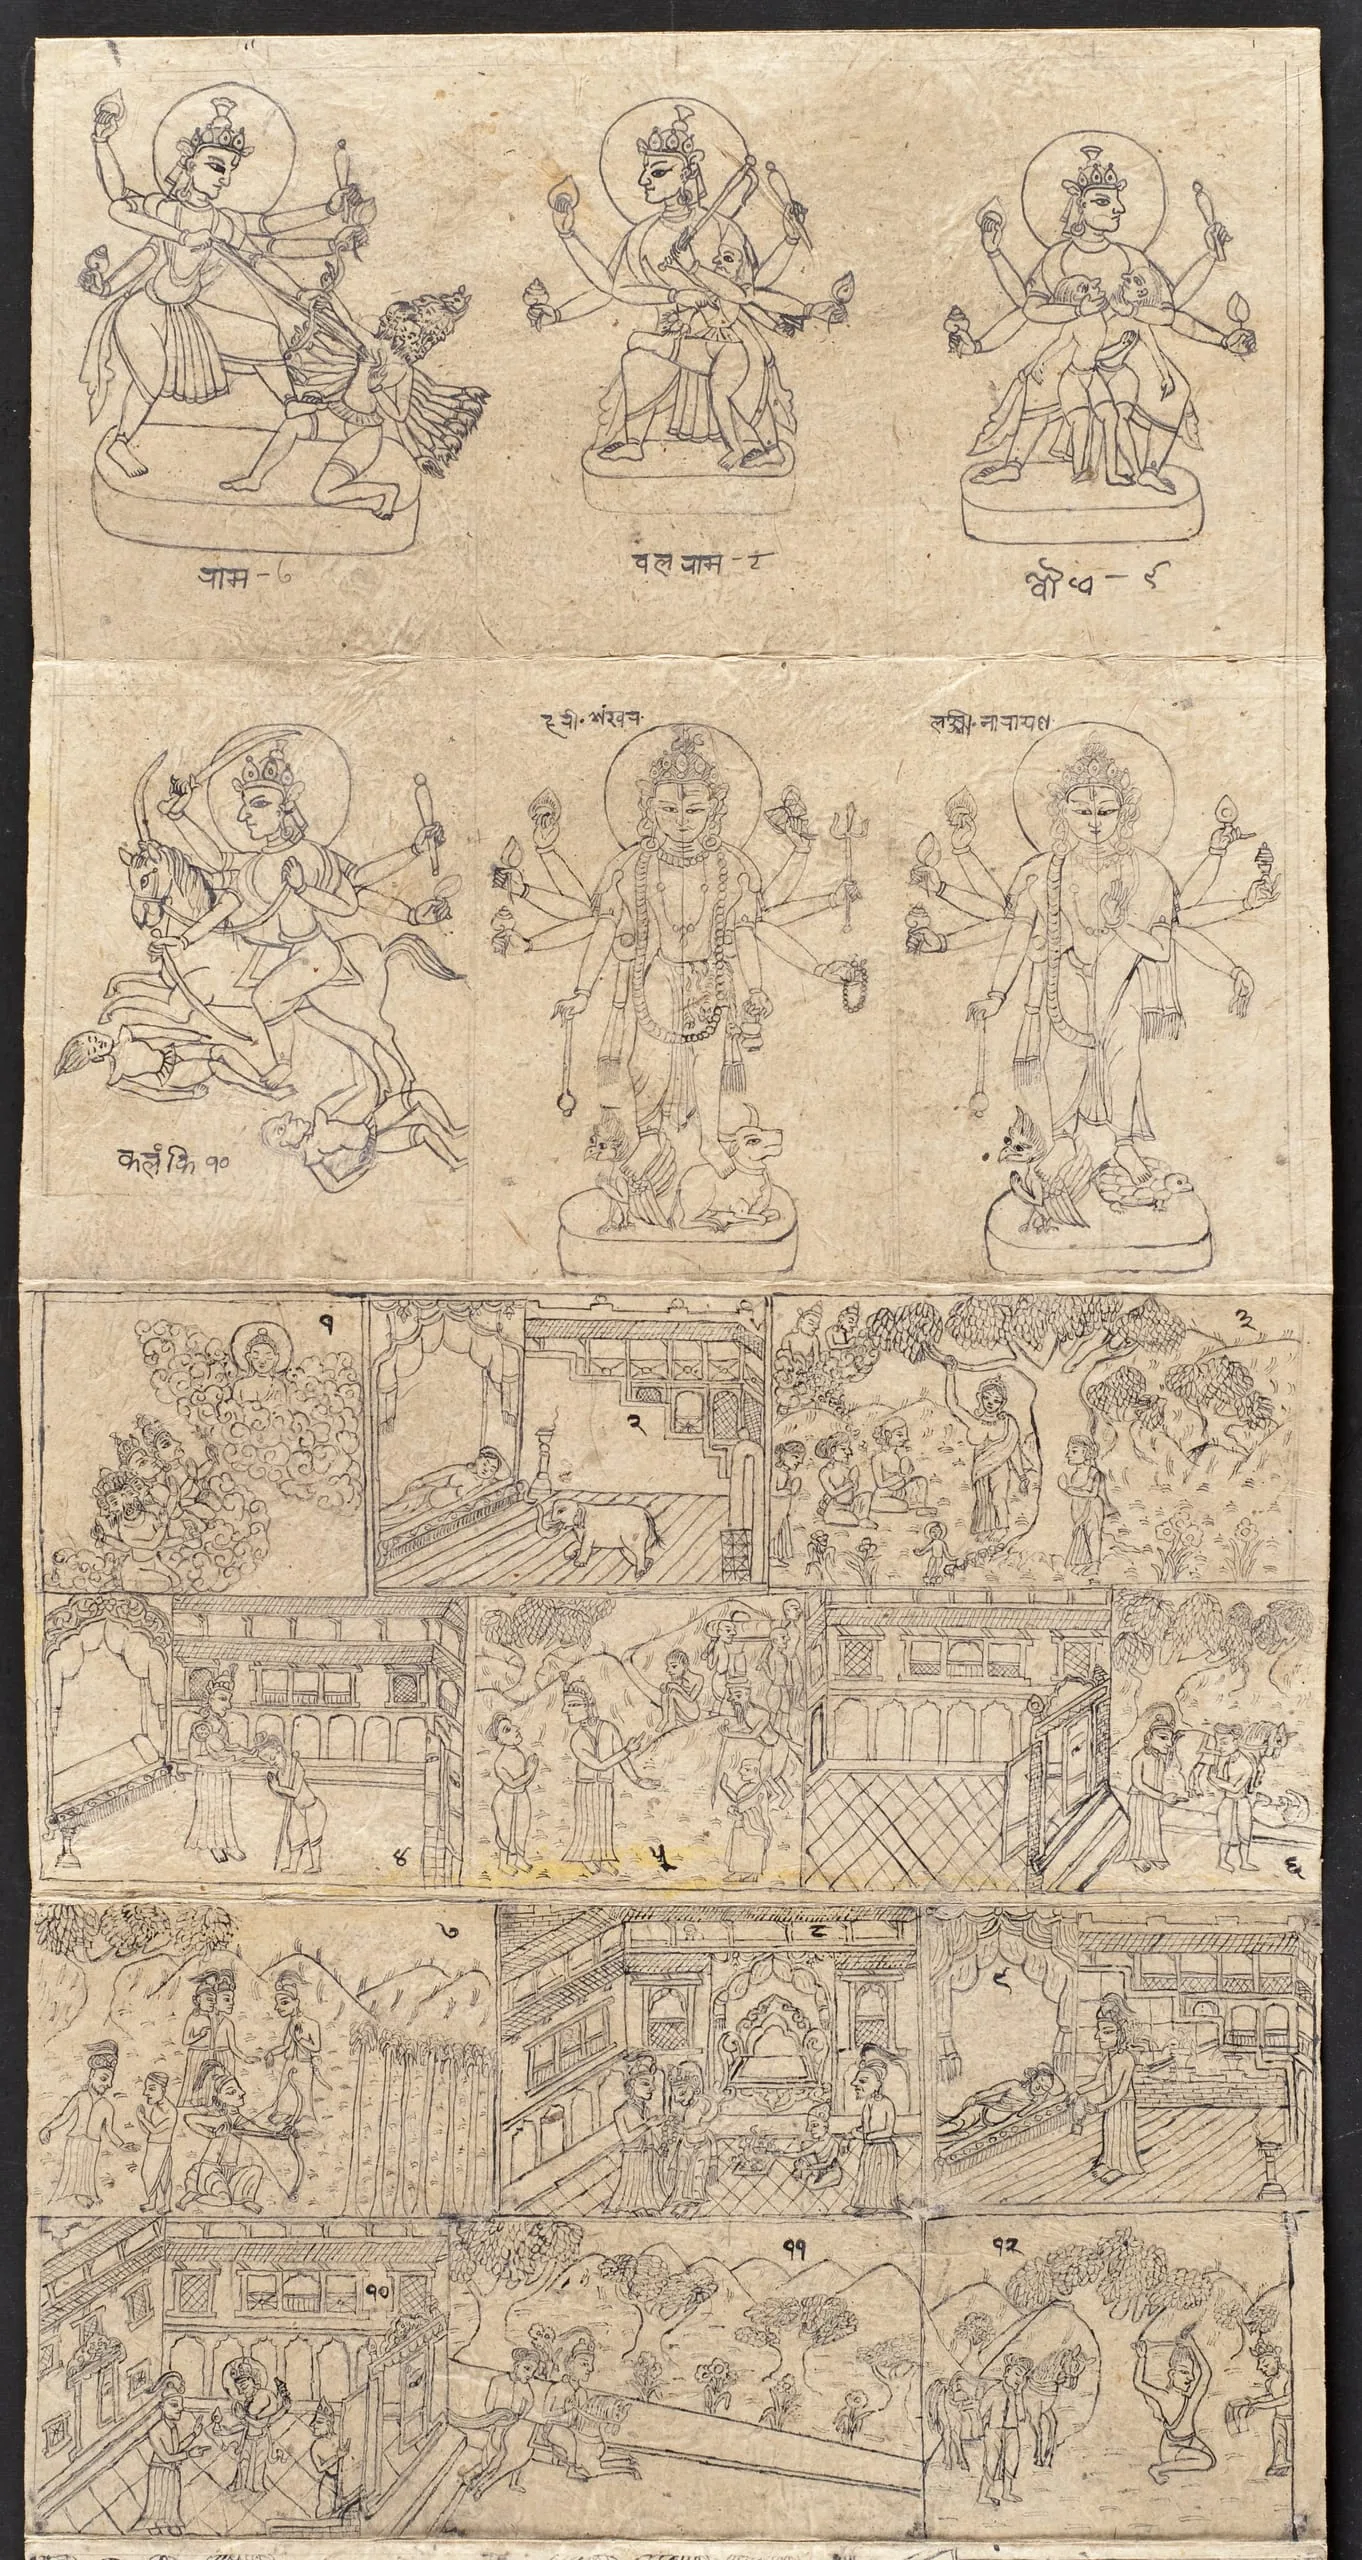 राम - ७
वलराम - ८
बौध्व - ९
हरी. शंखर.
लक्ष्मी. नारायण
कलंकि १०
१
२
३
४
५
६
७
८
९
१०
११
१२